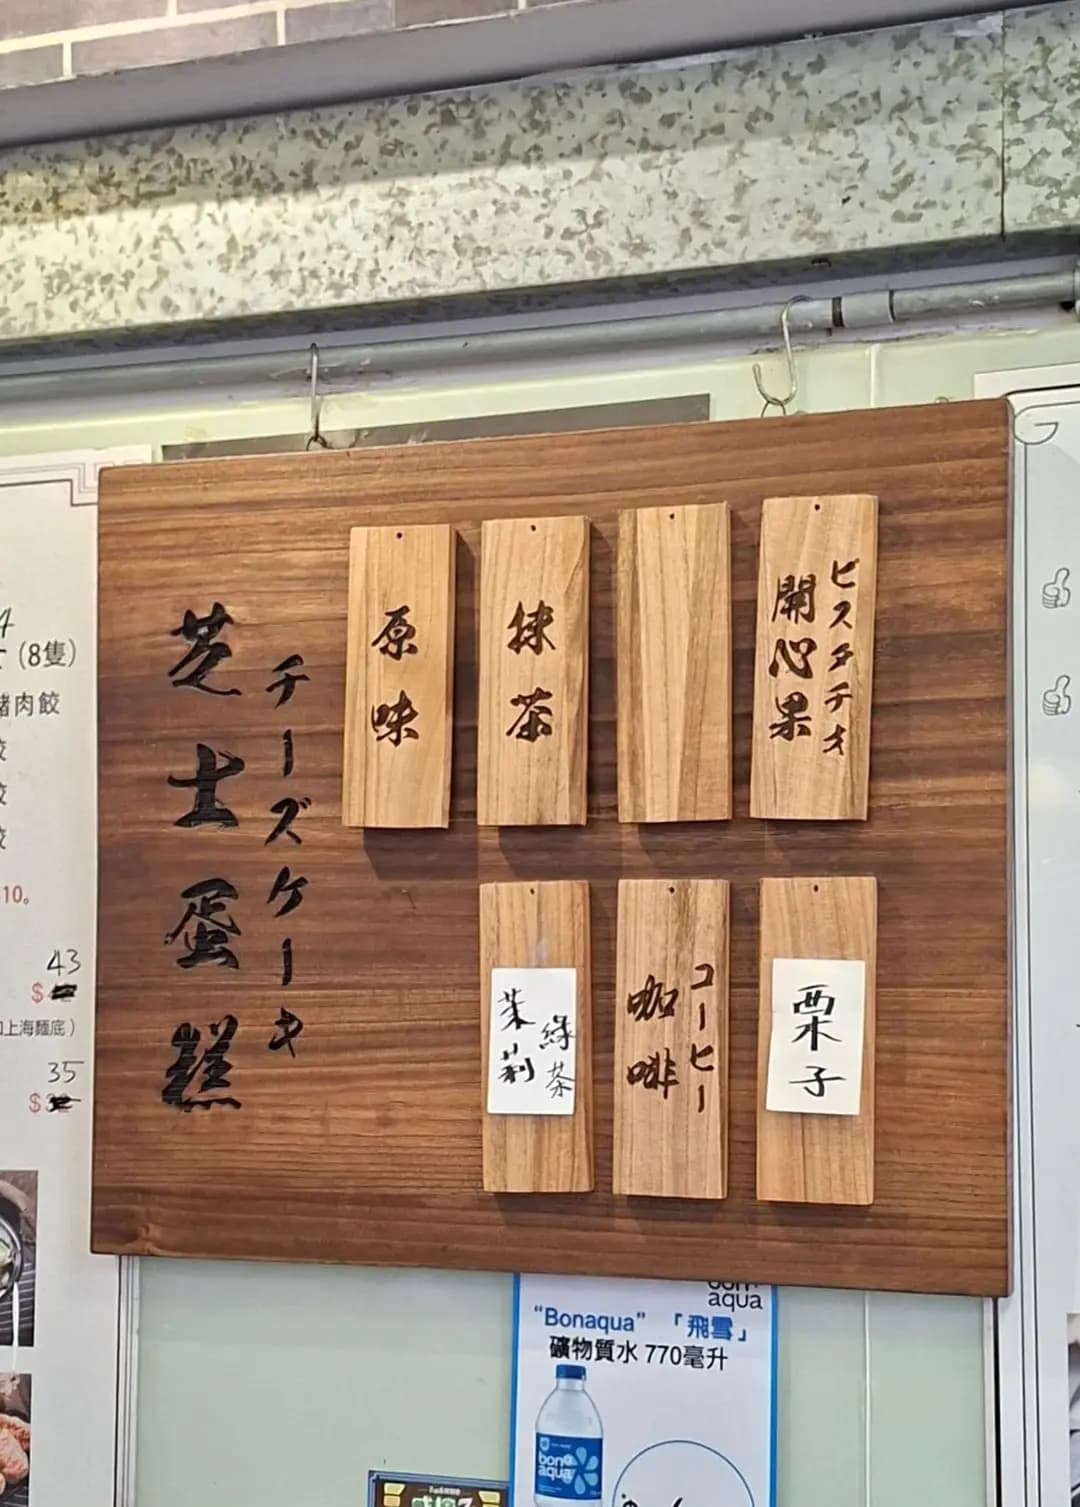 芝士蛋糕
チーズケーキ
原味
抹茶
開心果
ピスタチオ
茉莉
綠茶
咖啡
コーヒー
栗子
(8隻)
豬肉餃
10。
43
$
上海麵底）
35
$
bon
aqua
“Bonaqua” 「飛雪」
礦物質水 770毫升
bon
aqua